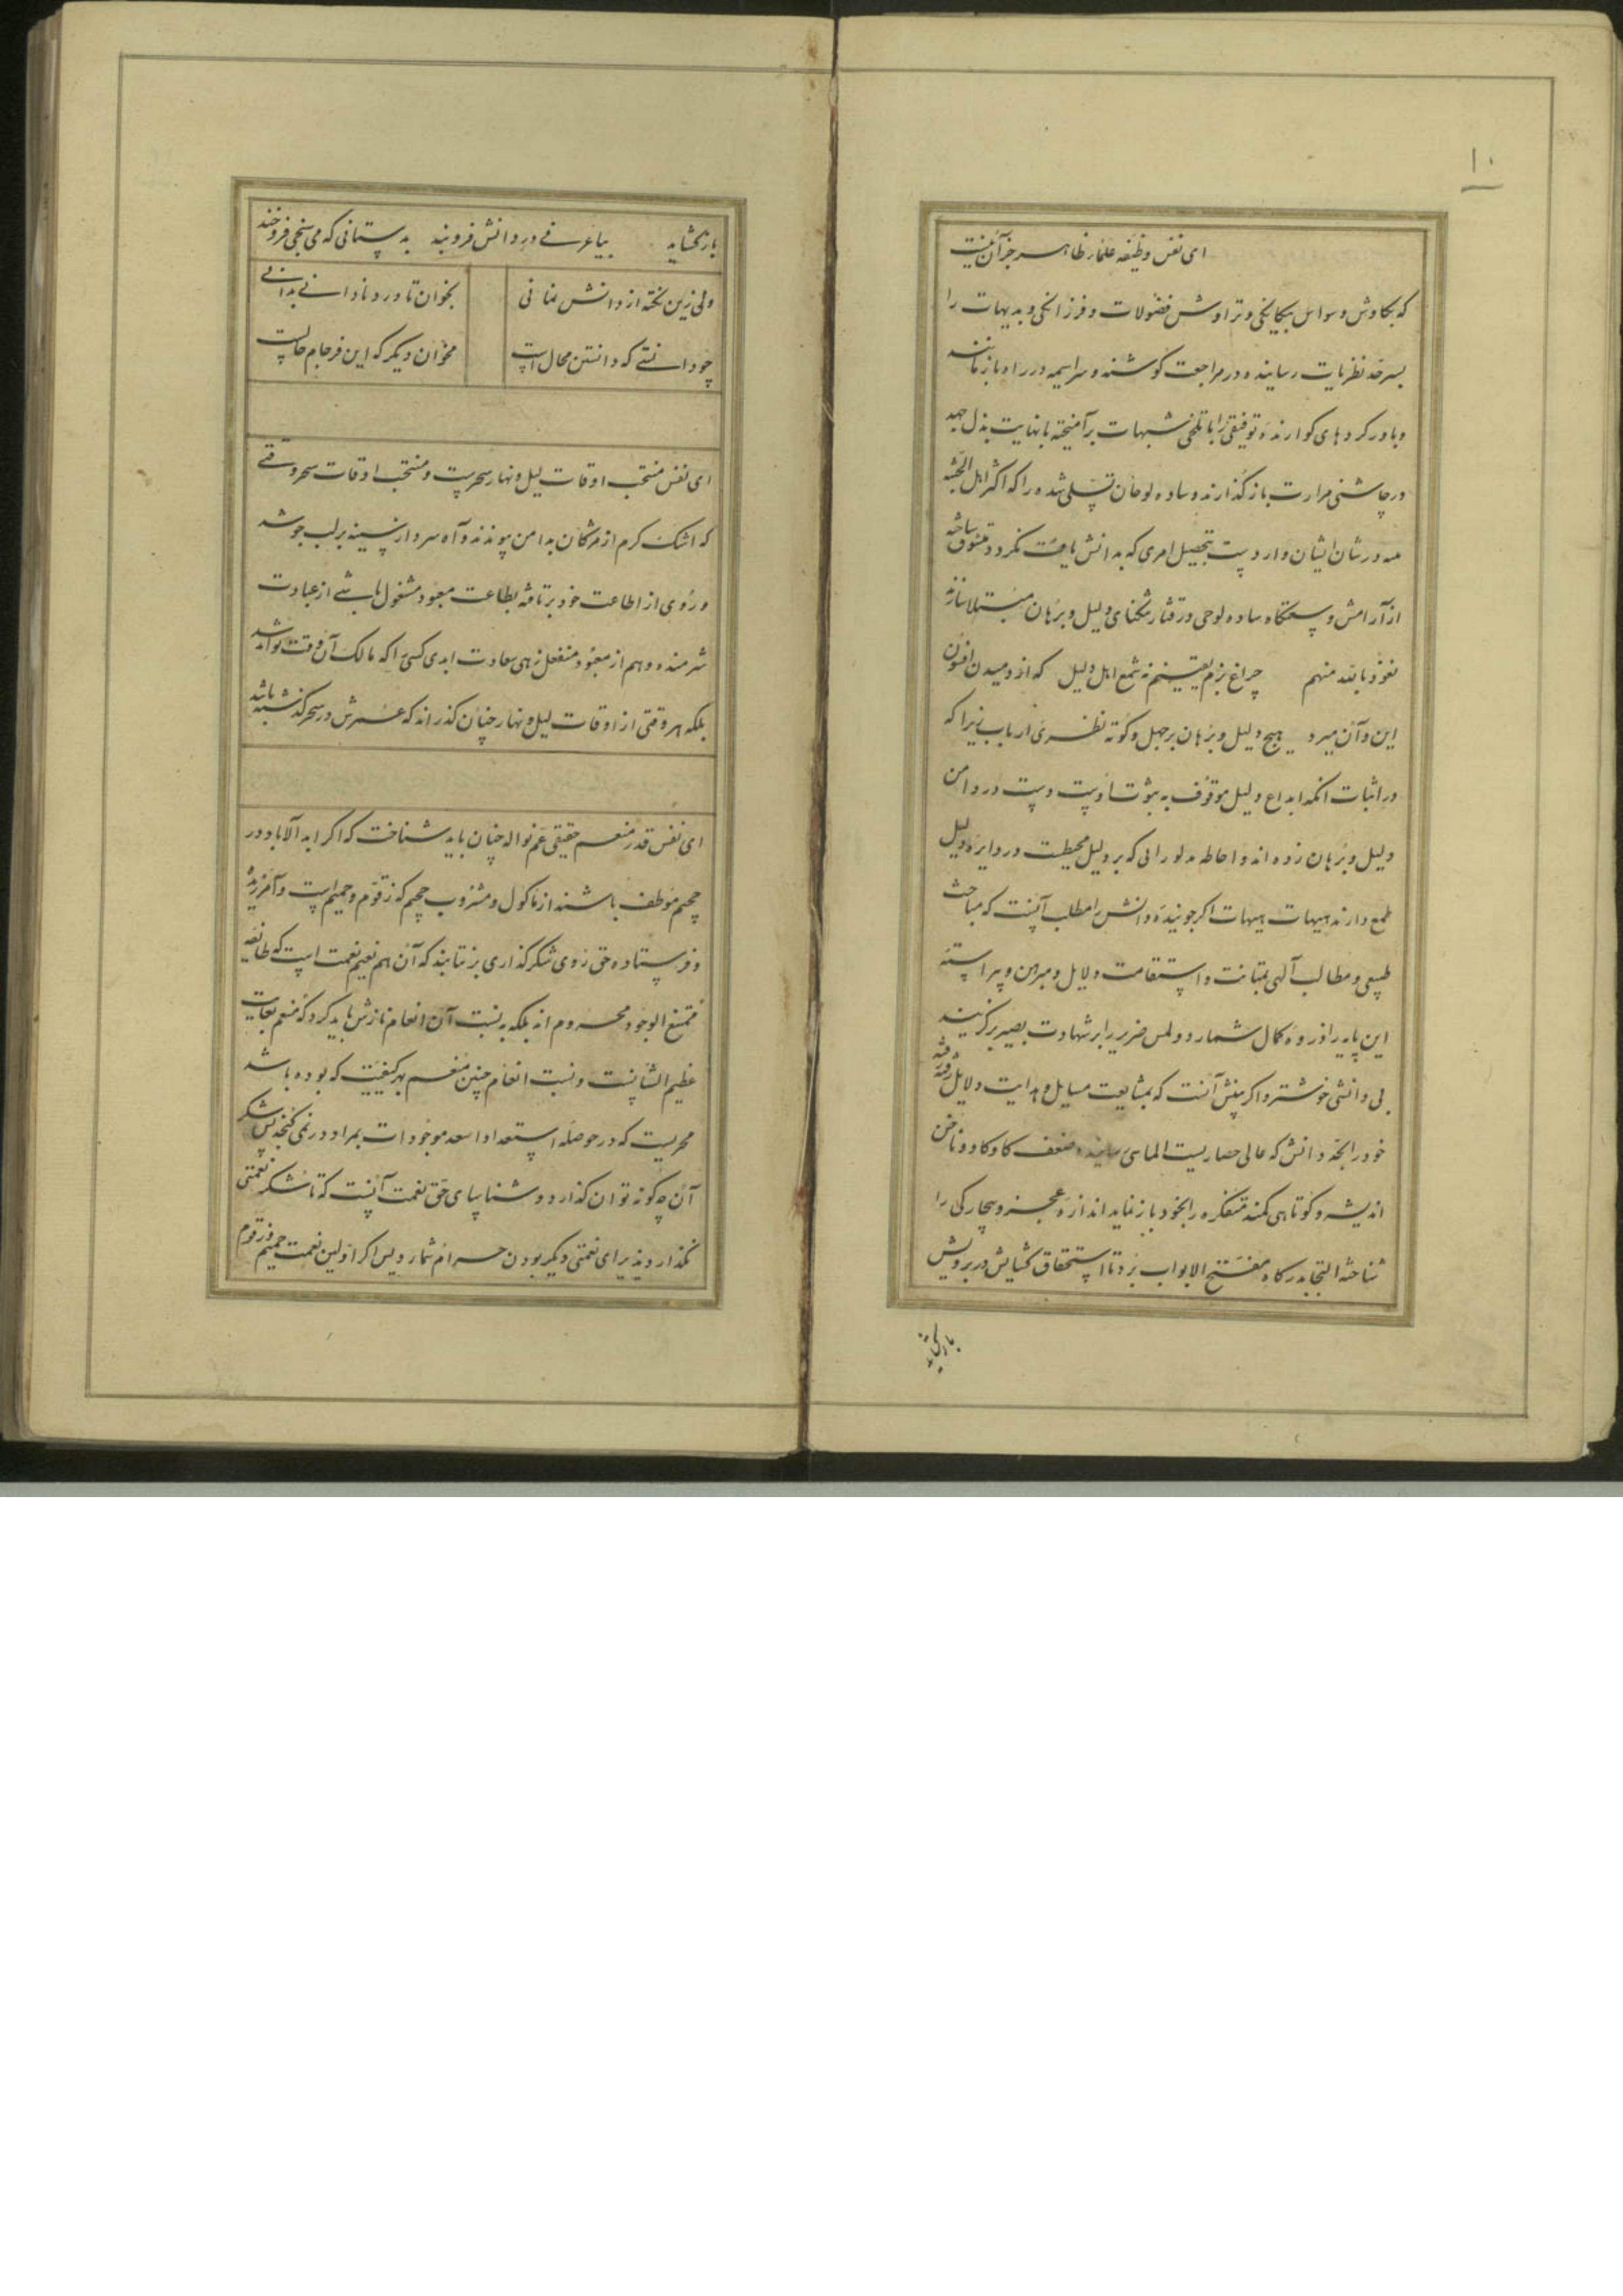 ۱۰
ای نفس وظیفه علماء ظاهر جز آن نیست
که بکاوش وسواس بیکایکی و تراوش فضولات و فرزانکی و بدیهات را
بسرحد نظریات رسانیده در مراجعت کوشند و سراسیمه در راه باز مانند
و باور کردهای کوارنده توفیقی را با تلخی شبهات برآمیخته بانهایت بذل جهد
در چاشنی مرارت باز گذارند و ساده لوحان تسلی شده را که اکثر اهل الجنة
در شان ایشان وارد است بتحصیل امری که بدانش یافت نکردد مشوق ساخته
از آرامش وسعتگاه ساده لوحی در قنار تنکنای دلیل و برهان مبتلا سازند
نعوذ بالله منهم چراغ بزم یقینم نه شمع اهل دلیل که از دمیدن افسون
این و آن میرد هیچ دلیل و برهان بر جهل و کوته نظری ارباب نیرا که
در اثبات انکه ابداع دلیل موقوف به ثبوت اوست دست در دامن
دلیل و برهان زده اند و احاطه مدلولرا یی که بر دلیل محیطست در دایره دلیل
طمع دارند هیهات هیهات اکر جوینده دانش را مطلب آنست که مباحث
طبیعی و مطالب آلهی بمتانت و استقامت دلایل و مبرهن و پیراسته
این پایه را ذروه کمال شمارد و لمس ضریر را بر شهادت بصیر برگزیند
بی دانشی خوشتر و اکر بینش آنست که بمشایعت مسایل و هدایت دلایل رفته رفته
خود را بحد دانش که عالی حصاریست الماسی رسانیده ضعف کاوکاو و ناخن
اندیشه و کوتاهی کمند متفکره را بخود باز نماید اندازه عجز و بیچارکی را
شناخته التجا بدرکاه مفتح الابواب برد تا استحقاق کشایش در بر ویش
بازکشاید
بازکشاید بیا عرفی در دانش فرو بند به پستانی که می سنجی فرو خند
ولی زین نکته از دانش نمانی بخوان تا ورد نادانی بدانی
چو دانستی که دانستن محال است مخوان دیکر که این فرجام حالست
ای نفس منتخب اوقات لیل و نهار سحر ست و منتخب اوقات سحر وقتی
که اشک کرم از مژکان بدامن پیوندد و آه سرد از سینه بر لب جوشد
و روی از اطاعت خود برتافته بطاعت معبود مشغول باشی از عبادت
شرمنده و هم از معبود منفعل زهی سعادت ابدی کسی را که مالک آن وقت تواند شد
بلکه هر وقتی از اوقات لیل و نهار چنان گذراند که عمرش در سحر گذشته باشد
ای نفس قدر منعم حقیقی عم نواله چنان باید شناخت که اکر ابد الاباد در
جحیم موظف باشند از ماکول و مشروب جحیم که زقوم و حمیم است و آمرزیده
و فرستاده حق روی شکرگذاری برنتابند که آن هم نعیم نعمت است که طایفه
ممتنع الوجود محروم اند بلکه به نسبت آن انعام نازش باید کرد که منعم بغایت
عظیم الشانست و نسبت انعام چنین منعم بهر کیفیت که بوده باشد
محریست که در حوصله استعداد اسعد موجودات بمراد در نمی کنجد پس شکر
آن چکونه توان گذارد و شناسای حق نعمت آنست که تا شکر نعمتی
نگذارد پذیرای نعمتی دیکر بودن حرام شمارد پس اکر اولین نعمت حمیم و زقوم